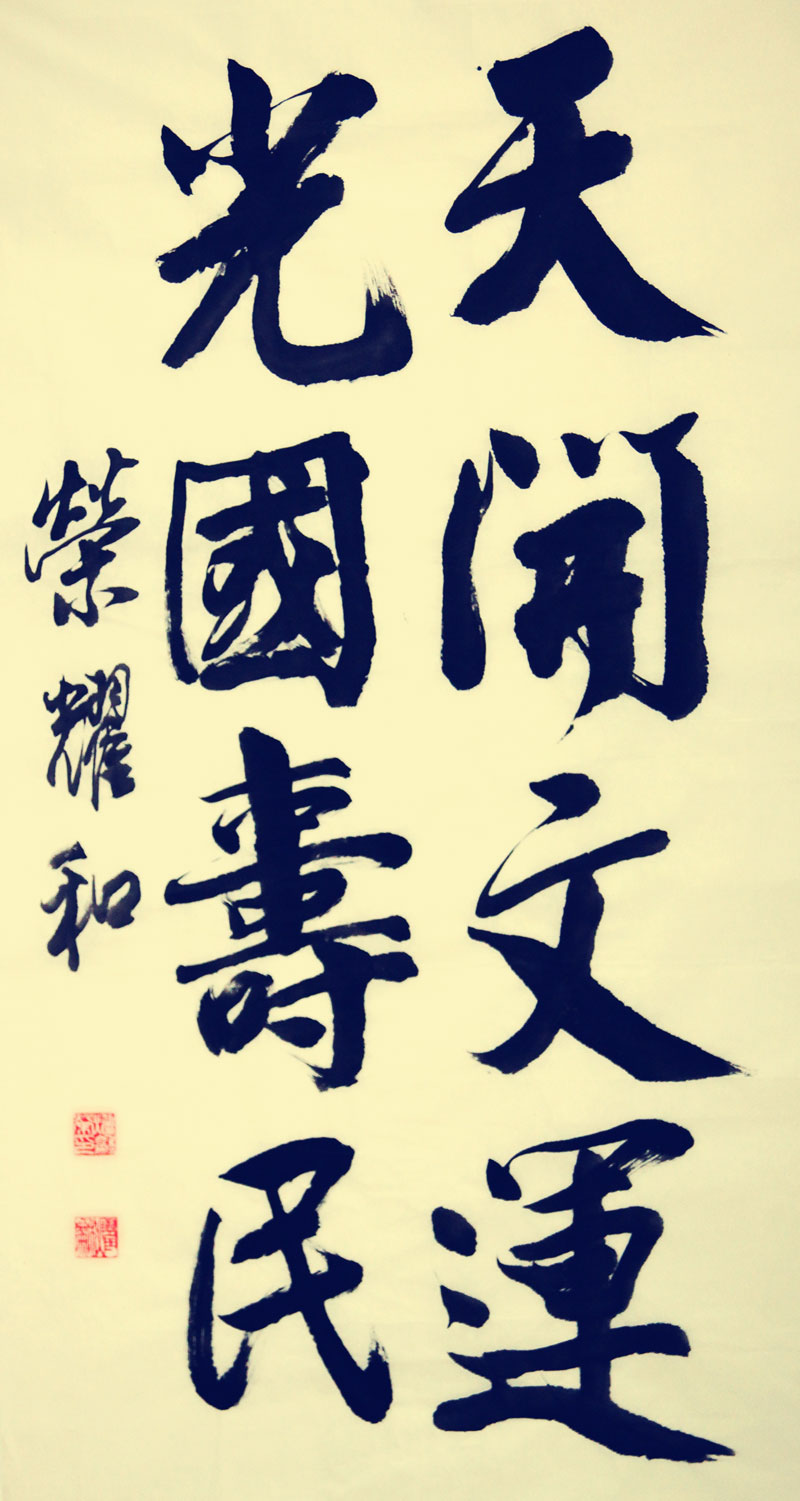 天開文運
光國壽民
榮耀和